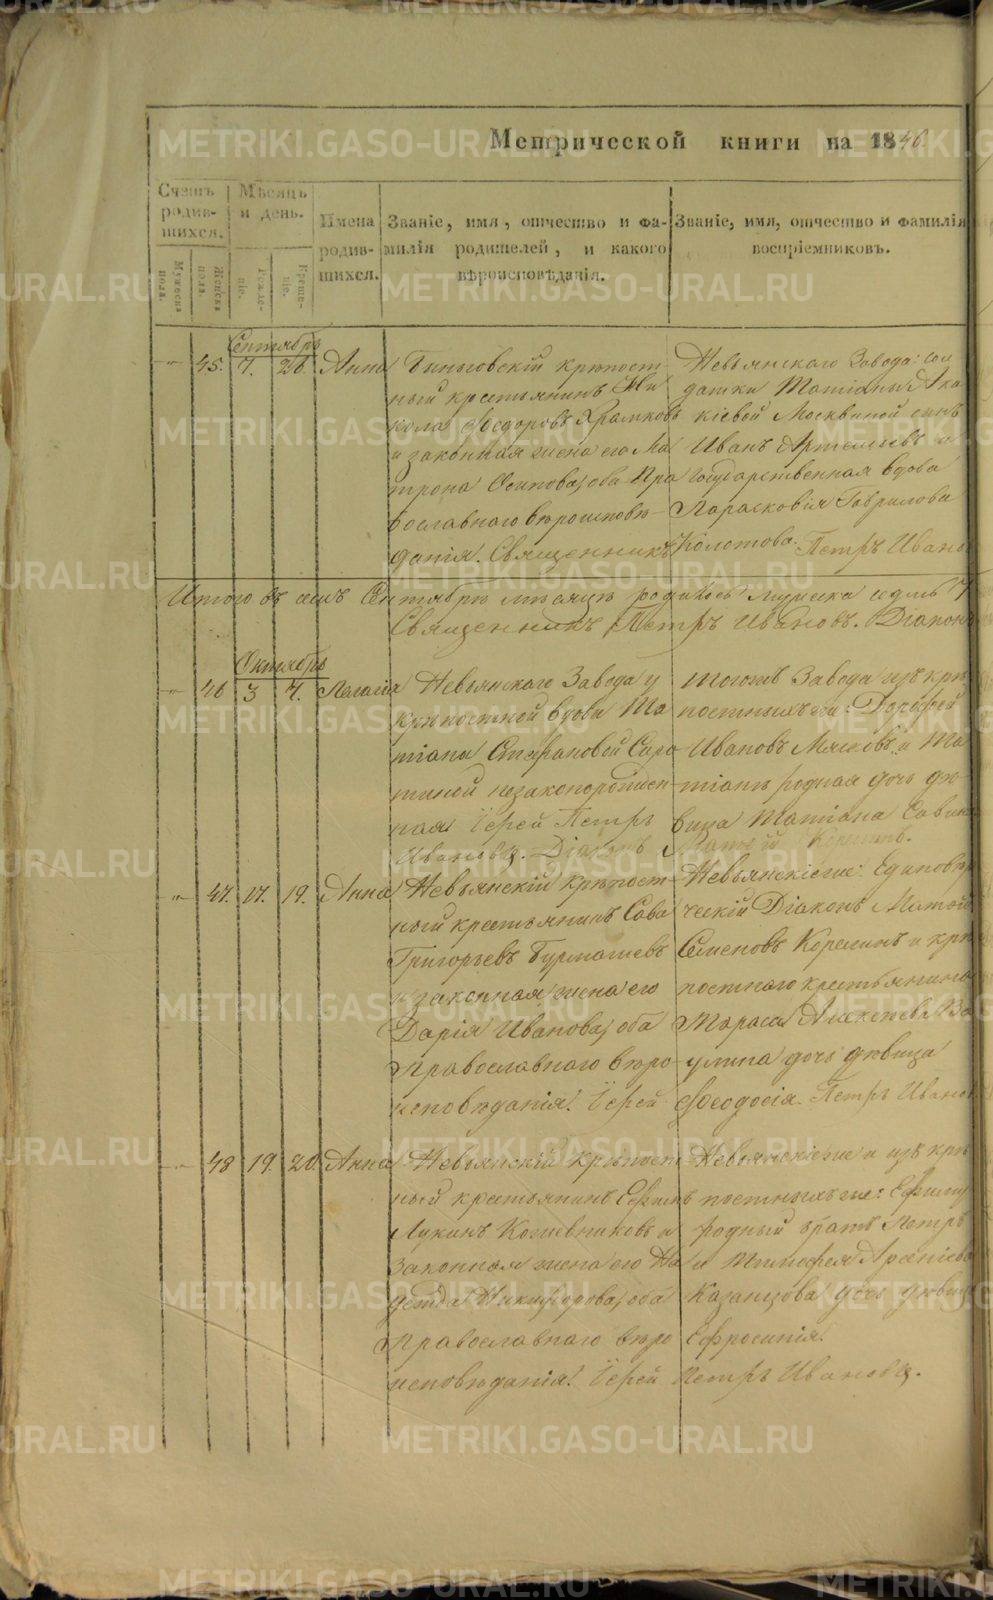 Метрической книги на 1846.
Счетъ родившихся.
Мѣсяцъ и день.
Имена родившихся.
Званіе, имя, отчество и фамилія родителей, и какого вѣроисповѣданія.
Званіе, имя, отчество и фамилія воспріемниковъ.
Мужеска пола.
Женска пола.
Рожденіе.
Крещеніе.
Сентябрь
45. 7. 26. Анна
крѣпост
ный крестьянинъ Ни
кола Ѳеодоровъ Храмковъ
и законная жена его Ма
трона Осипова, оба Пра
вославнаго вѣроисповѣ
данія. Священникъ
Невьянскаго Завода: сол
датки Татіаны Ака
кіевой Москвиной сынъ
Иванъ Артемьевъ и
государственная вдова
Парасковія Гаврилова
Колотова. Петръ Ивано
Итого въ семъ Сентябрѣ мѣсяцѣ родилось мужеска седмь 7
Священникъ Петръ Ивановъ. Діаконъ
Октябрь
46 3 7. Пелагія
Невьянскаго Завода у
крѣпостной вдовы Та
тіаны Стефановой Сиро
тиной незаконорожден
ная Іерей Петръ
Діаконъ
Тогожъ Завода изъ крѣ
постныхъ
Ивановъ и Та
тіаны родная дочь дѣ
вица Татіана Савина
Матѳей
47. 17. 19. Анна
Невьянскій крѣпост
ный крестьянинъ Сава
Григорьевъ Бурмашевъ
и законная жена его
Дарія Иванова, оба
Православнаго вѣро
исповѣданія. Іерей
Невьянскіе Единовѣр
ческій Діаконъ Матѳей
Семеновъ Корелинъ и крѣ
постнаго крестьянина
Тараса Алексеева Ва
улина дочь дѣвица
Ѳеодосія. Петръ Ивано
48 19. 20. Анна
Невьянскій крѣпост
ный крестьянинъ Ефимъ
Лукинъ Кожевниковъ и
законная жена его На
дежда Никифорова, оба
Православнаго вѣро
исповѣданія. Іерей
Невьянскіе и изъ крѣ
постныхъ же: Ефиму
родный братъ Петръ
и Тимофея Арсеніева
Казанцова дочь дѣвица
Ефросинія.
Петръ
METRIKI.GASO-URAL.RU